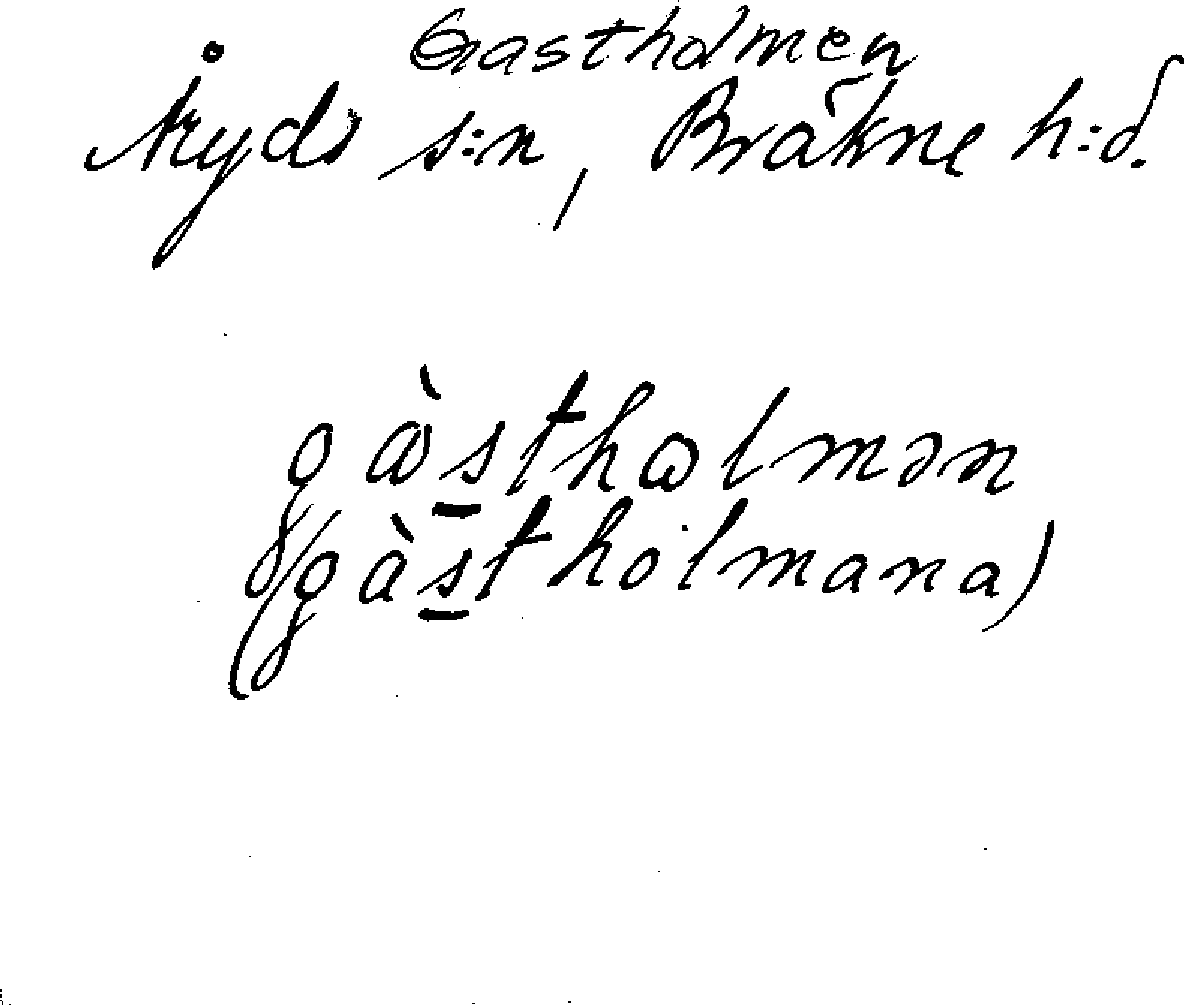 Gastholmen
Åryds s:n, Bräkne h:d.
gàs̲thɷlmən
(gàs̲tholmana)